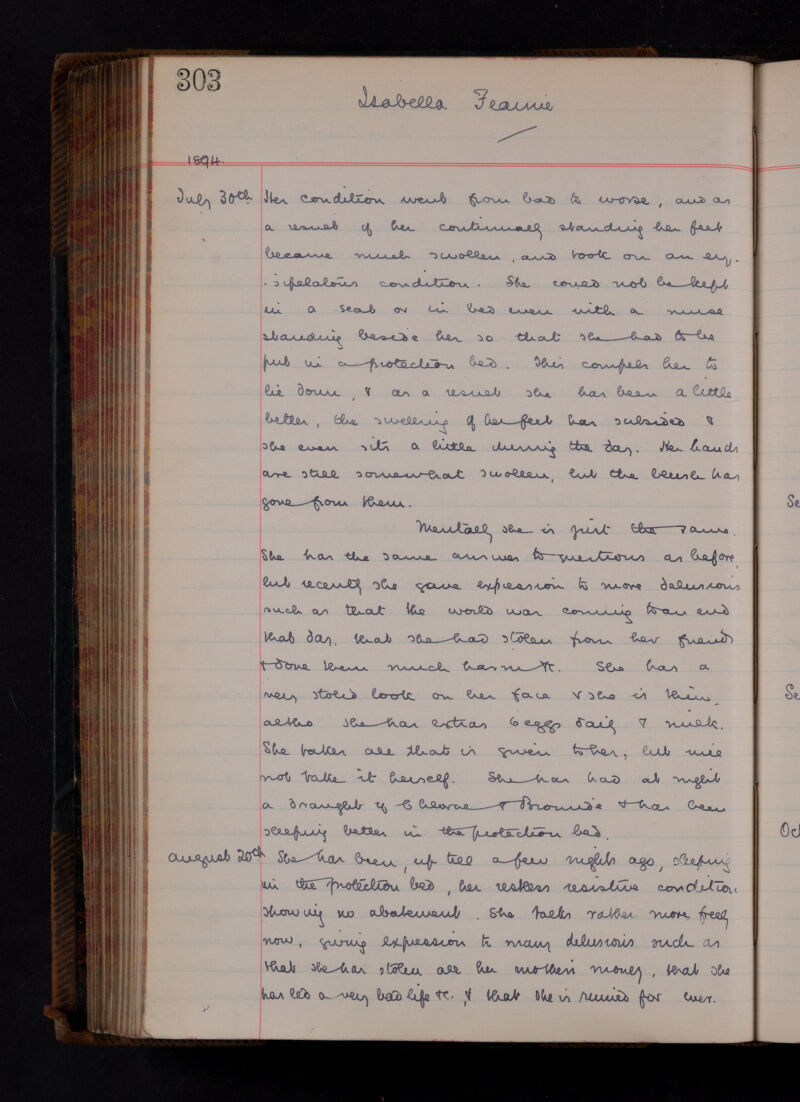 303
Isabella Fearnie
1894.
July 30th Her condition went from bad to worse, and as
a result of her continually standing her feet
became much swollen, and took on an ery-
-sipelatous condition. She could not be kept
in a seat or in bed even with a nurse
standing beside her so that she had to be
put in a protection bed. This compels her to
lie down, & as a result she has been a little
better, the swelling of her feet has subsided &
she even sits a little during the day. Her hands
are still somewhat swollen, but the blush has
gone from them.
Mentally she is just the same.
She has the same answer to questions as before,
but recently she gave expression to more delusions
such as that the world was coming to an end
that day, that she had stolen from her friends
& done them much harm &c. She has a
very stolid look on her face & she is thin,
altho she has extras 6 eggs daily & milk.
She takes all that is given to her, but will
not take it herself. She has had at night
a draught of Chloral & Bromide & has been
sleeping better in the protection bed.
August 20th She has been, up till a few nights ago, sleeping
in the protection bed, her restless resistive condition
showing no abatement. She talks rather more freely
now, giving expression to many delusions such as
that she has stolen all her mothers money, that she
has led a very bad life &c. & that she is ruined for ever.
Se
Se
Oc